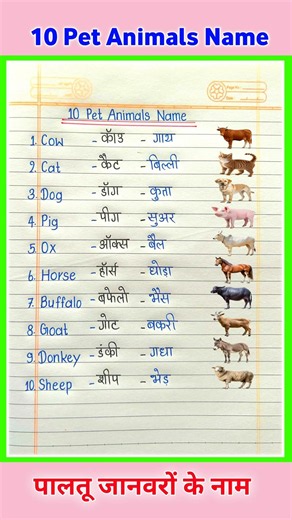 10 Pet Animals Name
10 Pet Animals Name
1. Cow - कॉउ - गाय
2. Cat - कैट - बिल्ली
3. Dog - डॉग - कुता
4. Pig - पीग - सुअर
5. Ox - ऑक्स - बैल
6. Horse - हॉर्स - घोड़ा
7. Buffalo - बफेलो - भैंस
8. Goat - गोट - बकरी
9. Donkey - डंकी - गधा
10. Sheep - शीप - भेड़
पालतू जानवरों के नाम